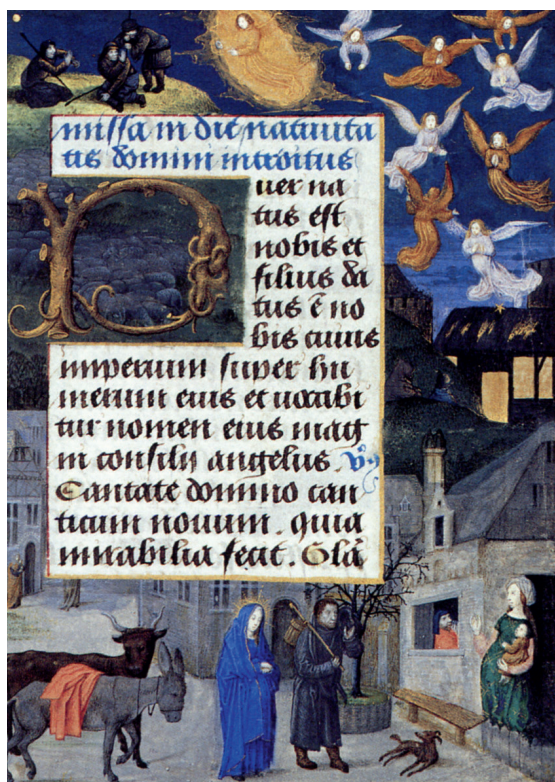 missa in die natiuita
tis domini introitus
Puer na
tus est
nobis et
filius da
tus ē no
bis cuius
imperium super hu
merum eius et uocabi
tur nomen eius mag
ni consilij angelus. V̊
Cantate domino can
ticum nouum. quia
mirabilia fecit. Glā